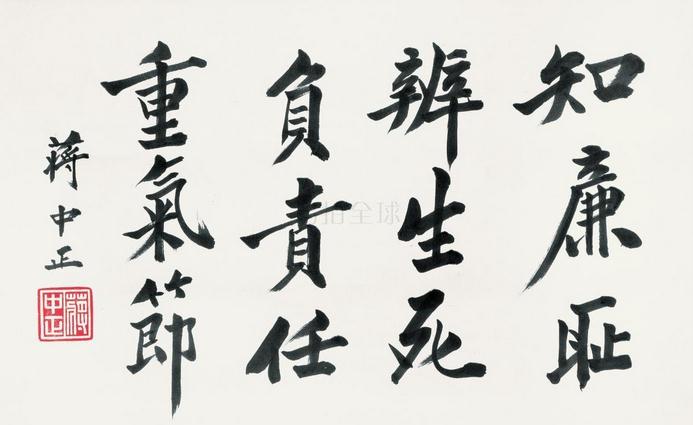 知廉恥
辨生死
負責任
重氣節
蔣中正
蔣中正